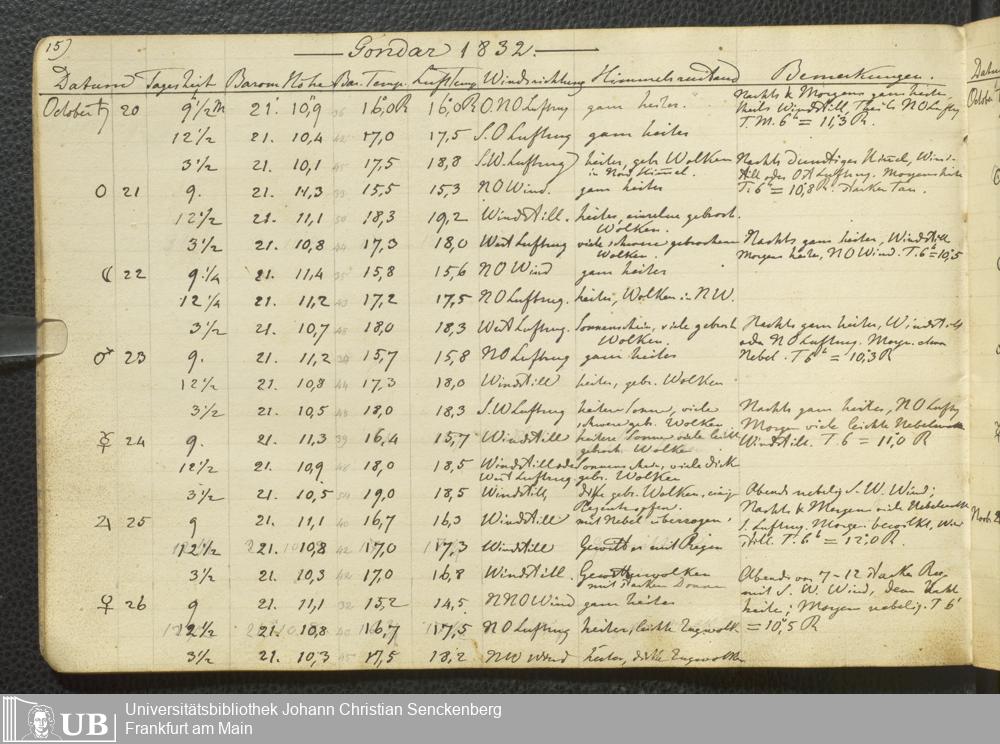 15)
Gondar 1832
Datum Tageszeit Barom Höhe Bar. Temp. Lufttemp Windrichtung Himmelszustand Bemerkungen.
October ♄ 20 9 1/2 M 21. 10,9 36 16,0R 16,0R O.NO Luftzug ganz heiter. Nachts & Morgens ganz heiter, theils Windstill, theils NO Luftzg T. M. 6h = 11,3 R.
12 1/2 21. 10,4 42 17,0 17,5 S.O Luftzug ganz heiter
3 1/2 21. 10,1 45 17,5 18,8 S.W. Luftzug heiter, gebr. Wolken in Nord Himmel. Nachts dunstiges Himmel, Windstill oder Ost Luftzug. Morgens heiter T. 6h = 10,8 R. starker Tau.
☉ 21 9. 21. 11,3 39 15,5 15,3 NO Wind. ganz heiter
12 1/2 21. 11,1 50 18,3 19,2 Windstill. heiter, einzelne gebroch. Wolken.
3 1/2 21. 10,8 44 17,3 18,0 West Luftzug viele schwere gebrochene Wolken. Nachts ganz heiter, Windstill Morgen heiter, NO Wind. T. 6h = 10,5
☾ 22 9 1/4 21. 11,4 35 15,8 15,6 NO Wind ganz heiter
12 1/4 21. 11,2 43 17,2 17,5 NO Luftzug. heiter, Wolken in NW.
3 1/2 21. 10,7 48 18,0 18,3 West Luftzug. Sonnenschein, viele gebroch Wolken. Nachts ganz heiter, Windstill oder NO Luftzug. Morgen etwas Nebel. T 6h = 10,3 R
♂ 23 9. 21. 11,2 34 15,7 15,8 NO Luftzug ganz heiter
12 1/2 21. 10,8 44 17,3 18,0 Windstill heiter, gebr. Wolken
3 1/2 21. 10,5 48 18,0 18,3 S.W Luftzug heitere Sonne, viele schwere geb. Wolken Nachts ganz heiter, NO Luftzg Morgen viele leichte Nebelwolk Windstill. T. 6 = 11,0 R
☿ 24 9. 21. 11,3 39 16,4 15,7 Windstill heitere Sonne viele leichte gebroch. Wolke
12 1/2 21. 10,9 46 18,0 18,5 Windstill oder West Luftzug Sonnenschein, viele dicke gebr. Wolken
3 1/2 21. 10,5 54 19,0 18,5 Windstill, dicke gebr. Wolken, einige Regentropfen. Abends nebelig S. W. Wind; Nachts & Morgens viele Nebelwolk S. Luftzug. Morgen bewölkt, Windstill. T. 6h = 12,0 R.
♃ 25 9 21. 11,1 40 16,7 16,3 Windstill mit Nebel überzogen,
12 1/2 21. 10,8 42 17,0 17,3 Windstill Gewitter mit Regen
3 1/2 21. 10,3 42 17,0 16,8 Windstill. Gewitterwolken mit starken Donner Abends von 7-12 starke Reg. mit S. W. Wind, dem Nacht heiter; Morgen nebelig. T 6h = 10,5 R
♀ 26 9 21. 11,1 32 15,2 14,5 NNO Wind ganz heiter
12 1/2 21. 10,8 40 16,7 17,5 NO Luftzug heiter, leichte Zugwolk
3 1/2 21. 10,3 45 17,5 18,2 NW Wind heiter, dicke Zugwolken
Datum
October
Novb.
UB
Universitätsbibliothek Johann Christian Senckenberg
Frankfurt am Main